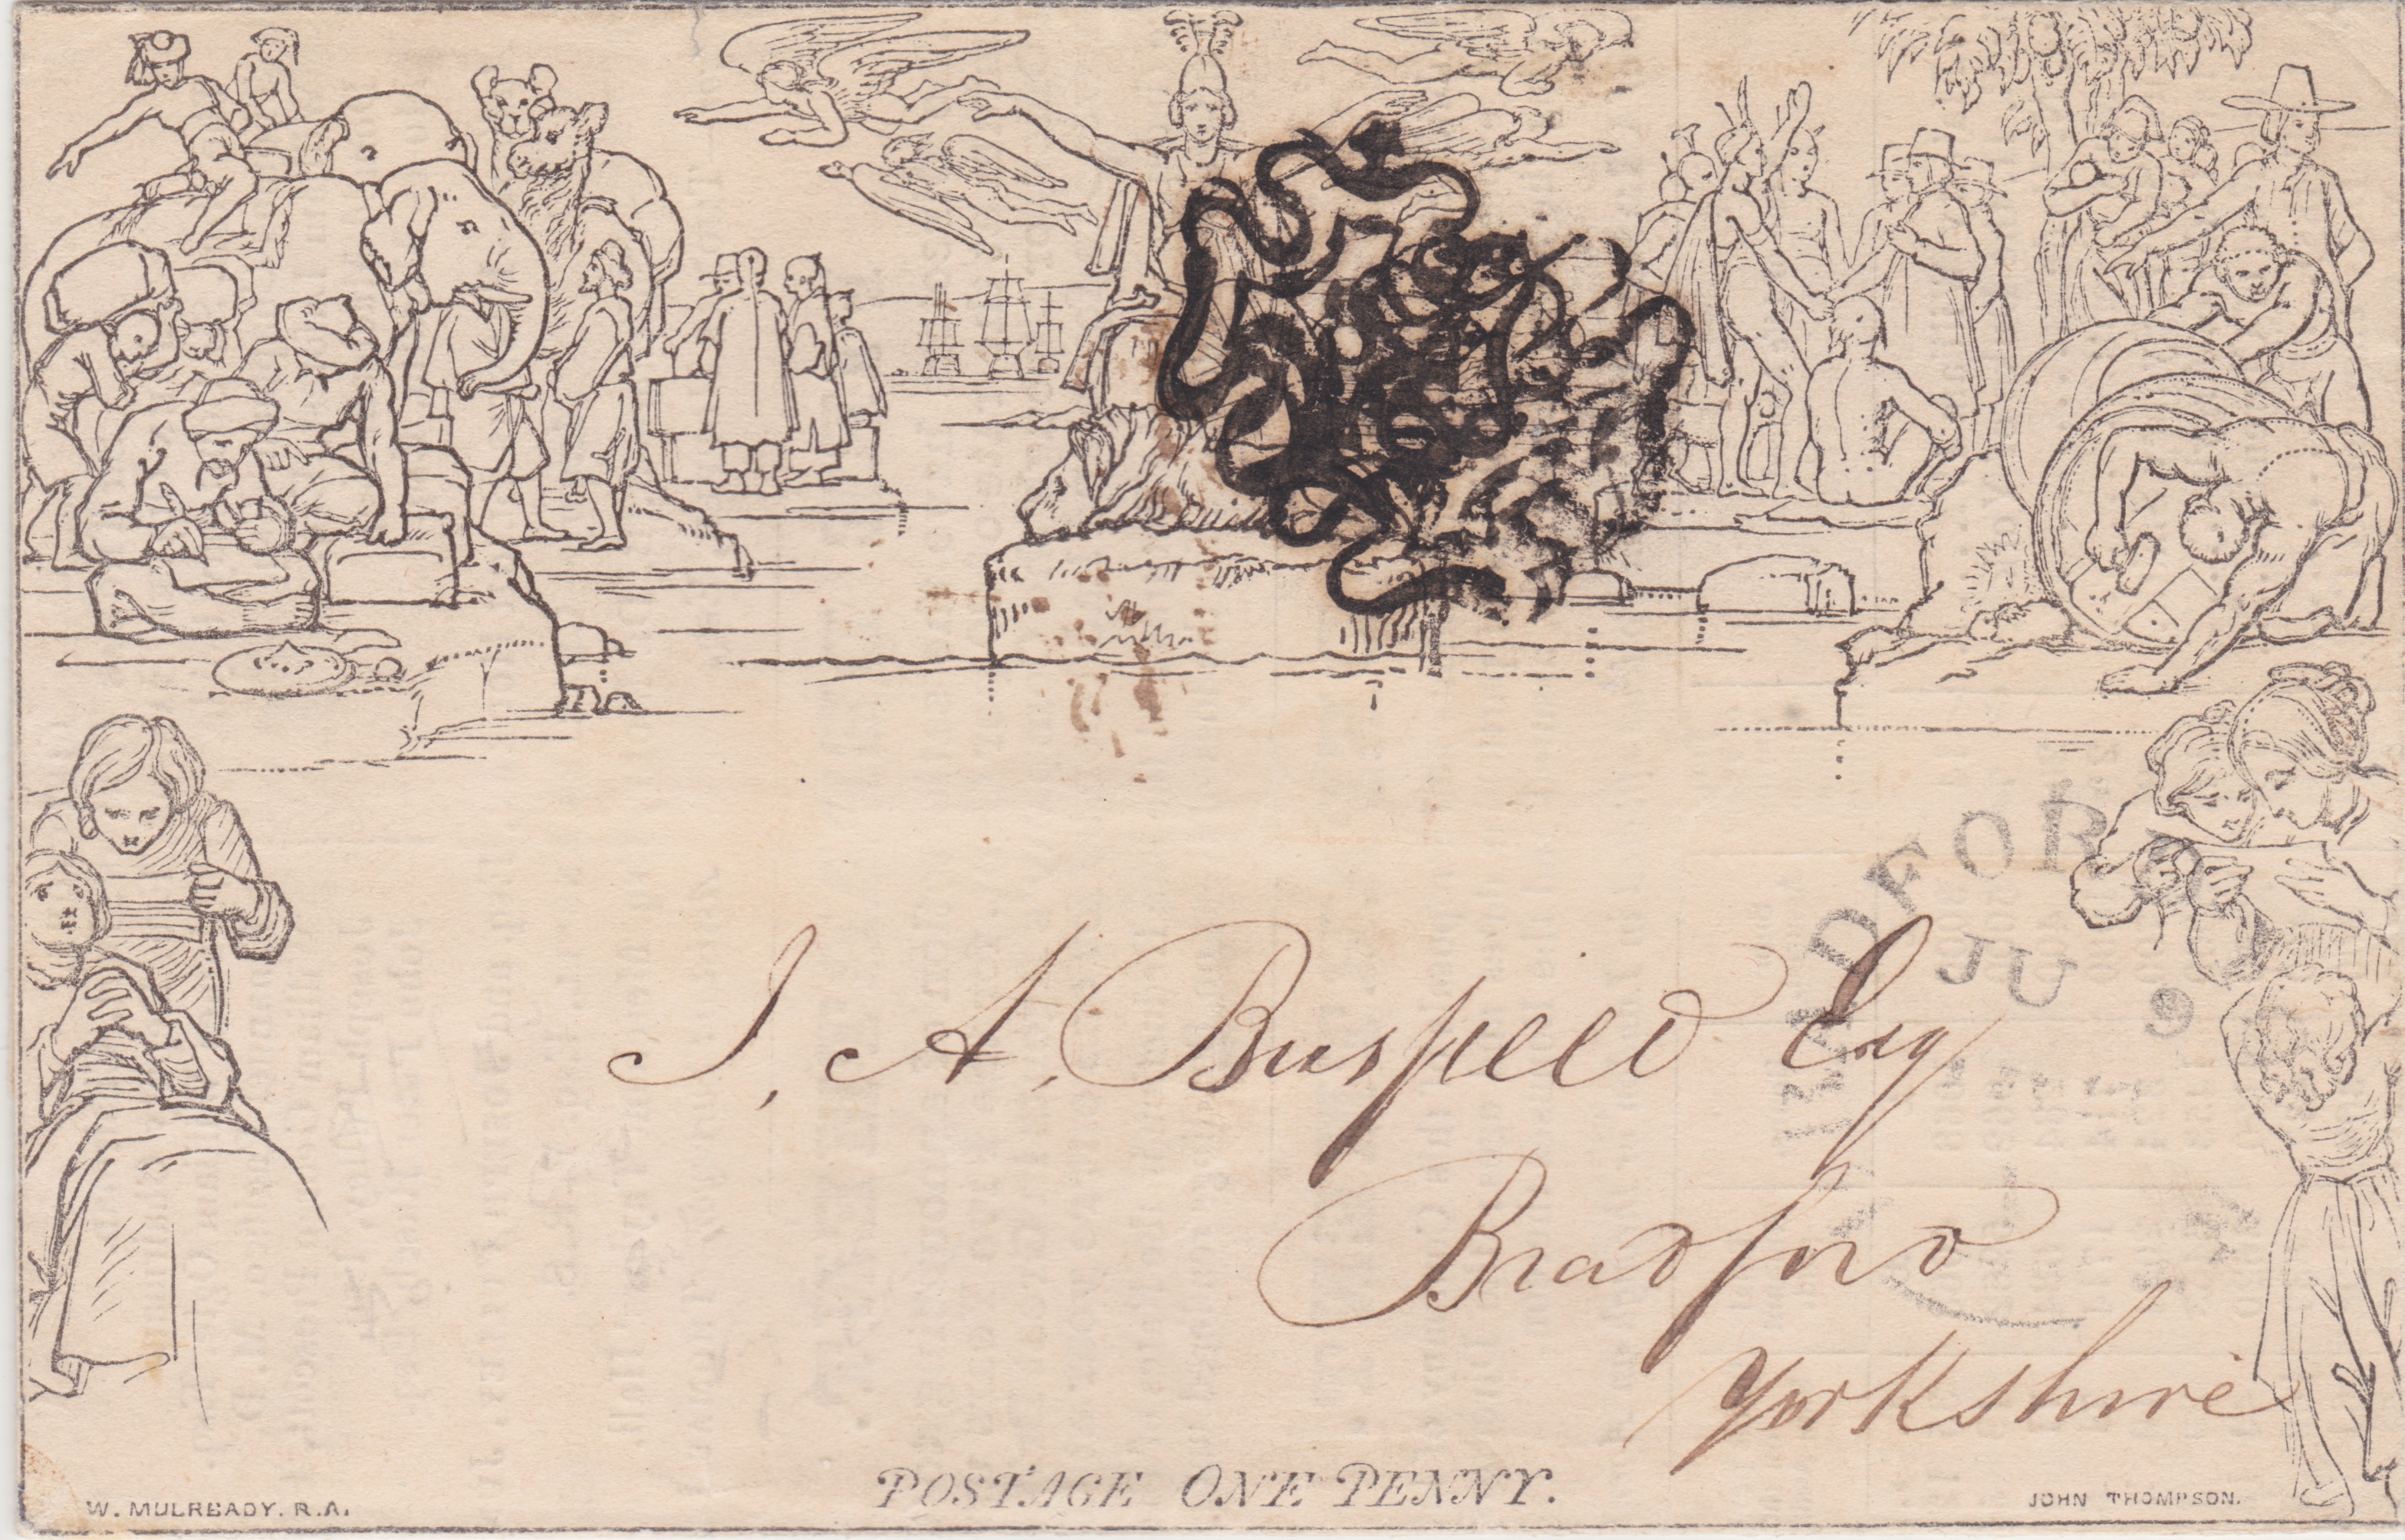 BRADFORD
JU 9
J. A. Busfield Esq
Bradford
Yorkshire
POSTAGE ONE PENNY.
W. MULREADY. R.A.
JOHN THOMPSON.